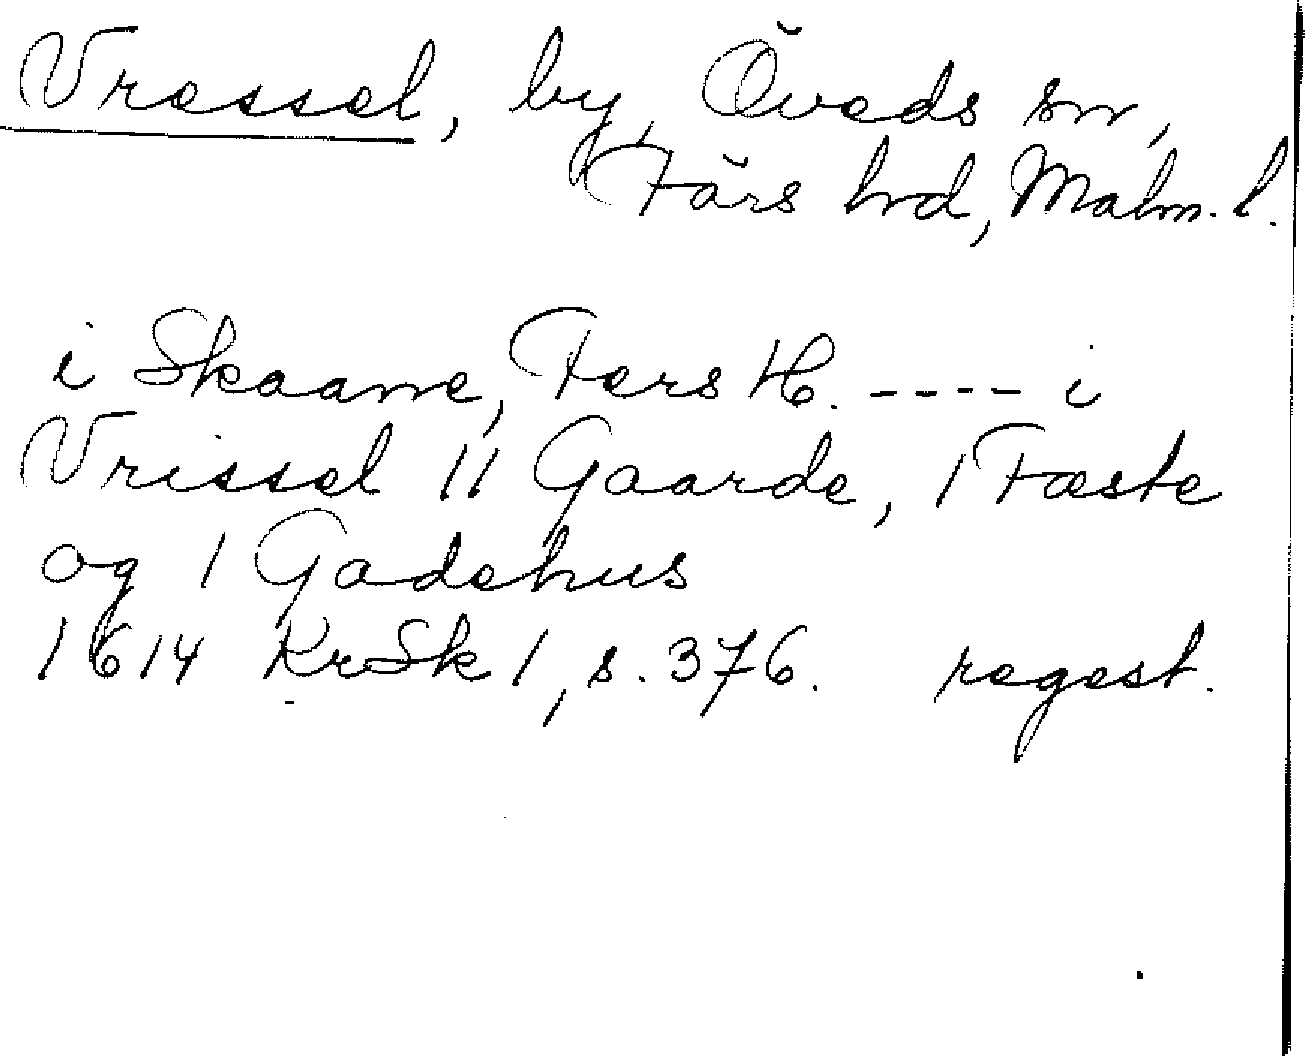 Vressel, by, Öveds sn,
Färs hrd, Malm. l.
i Skaane, Fers H. ---- i
Vrissel 11 Gaarde, 1 Fæste
og 1 Gadehus
1614 KrSk 1, s. 376. regest.